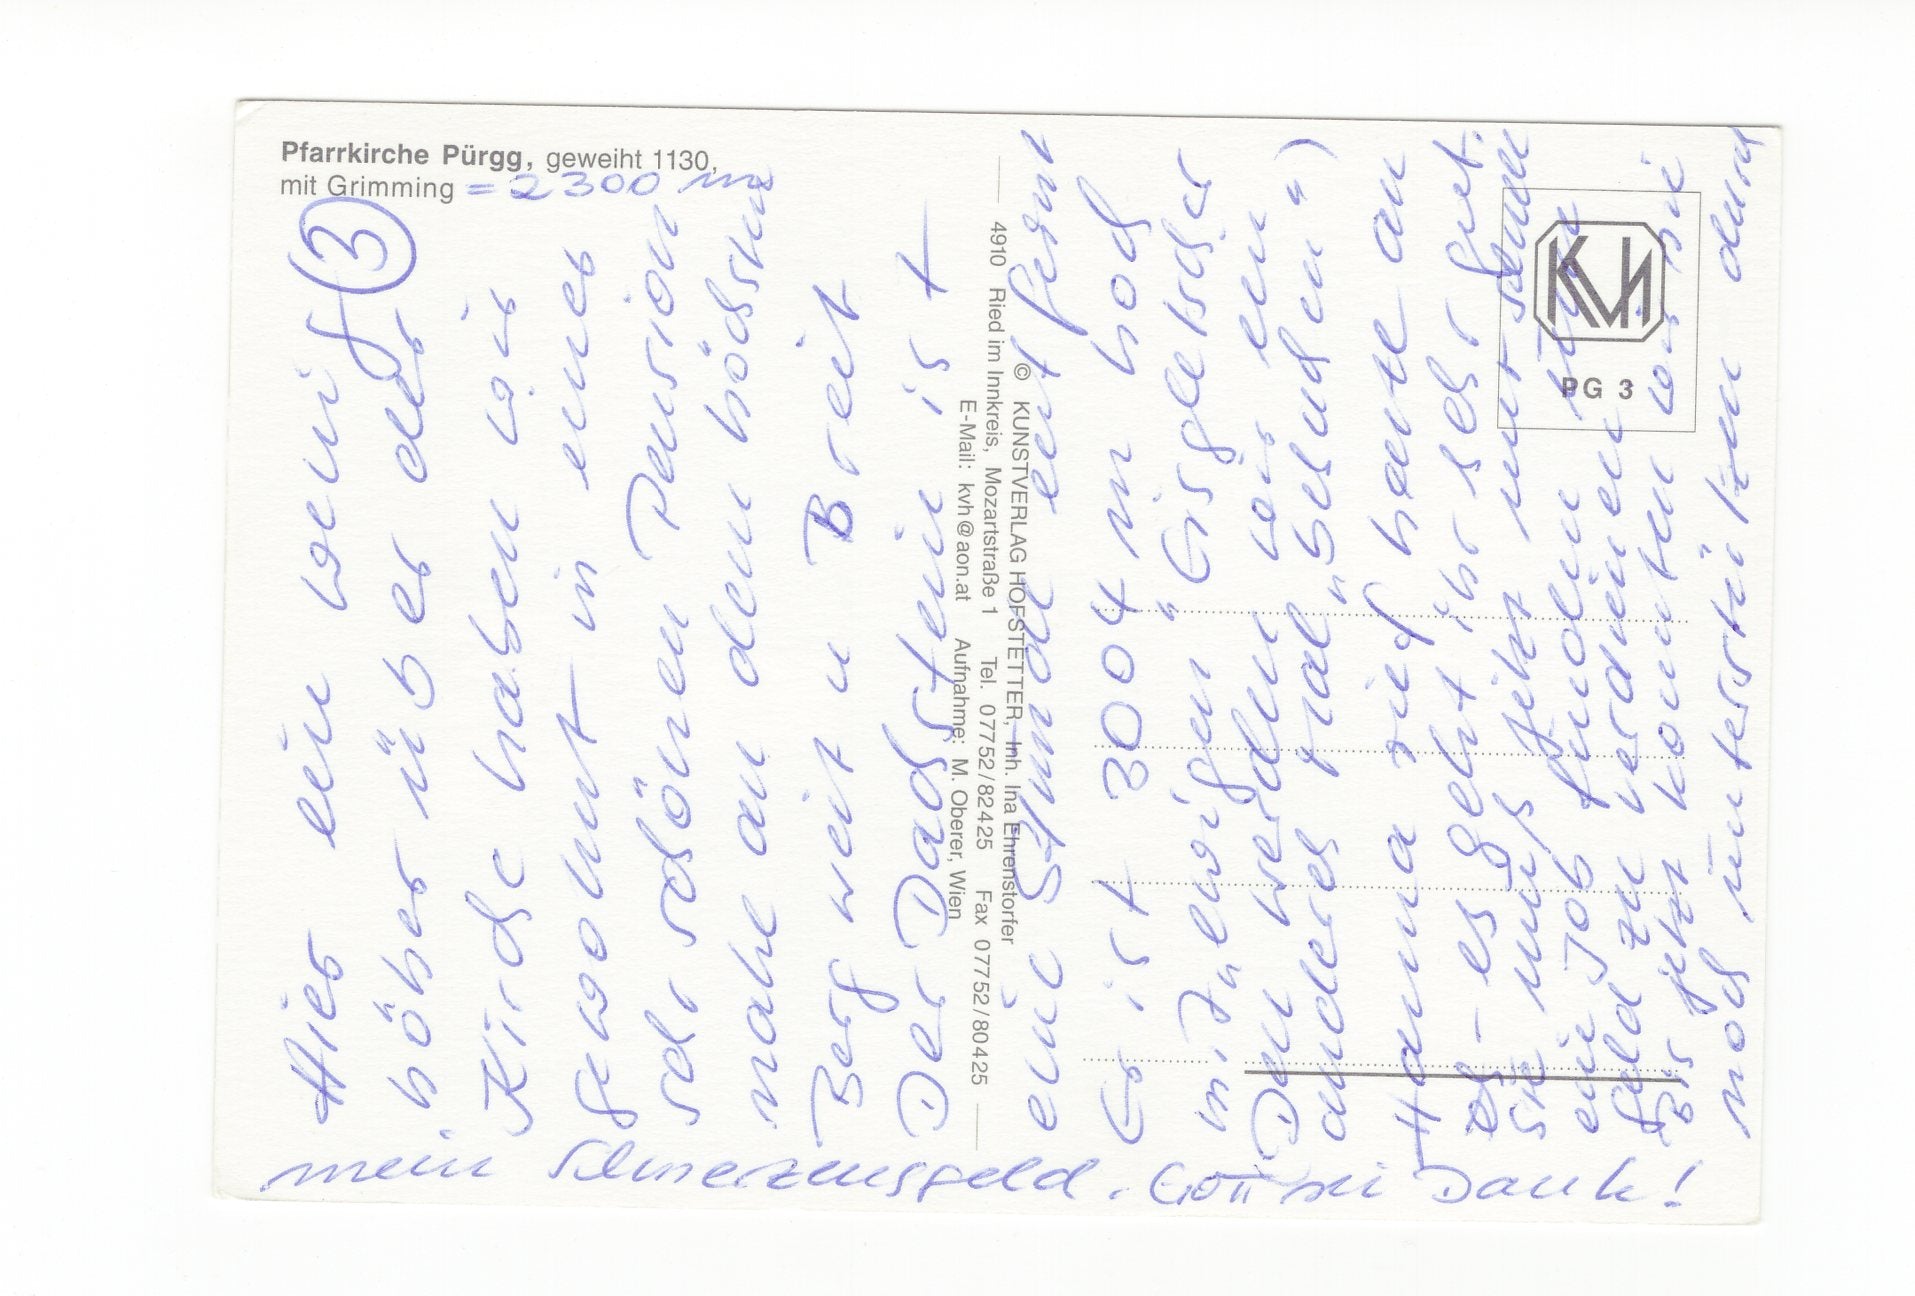 Pfarrkirche Pürgg, geweiht 1130,
mit Grimming = 2300 m
3
Hier ein wenig
höher über der
Kirche haben wir
gewohnt in einer
sehr schönen Pension
nahe an dem höchsten
Berg weit u Breit
Der Dachstein ist
eine Stunde entfernt
Er ist 3004 m hoch
mit "ewigen" Eisgletscher
Den werden wir ein
anderes Mal "besuchen")
Hanna rief heute an
– es geht ihr sehr gut.
Sie muß jetzt nur
ein Job finden um
Geld zu verdienen
Bis jetzt konnten wir sie
noch unterstützen durch
mein Schmerzensgeld. Gott sei Dank!
© KUNSTVERLAG HOFSTETTER, Inh. Ina Ehrenstorfer
4910 Ried im Innkreis, Mozartstraße 1 Tel. 07752/82425 Fax 07752/80425
E-Mail: kvh@aon.at Aufnahme: M. Oberer, Wien
KVH
PG 3